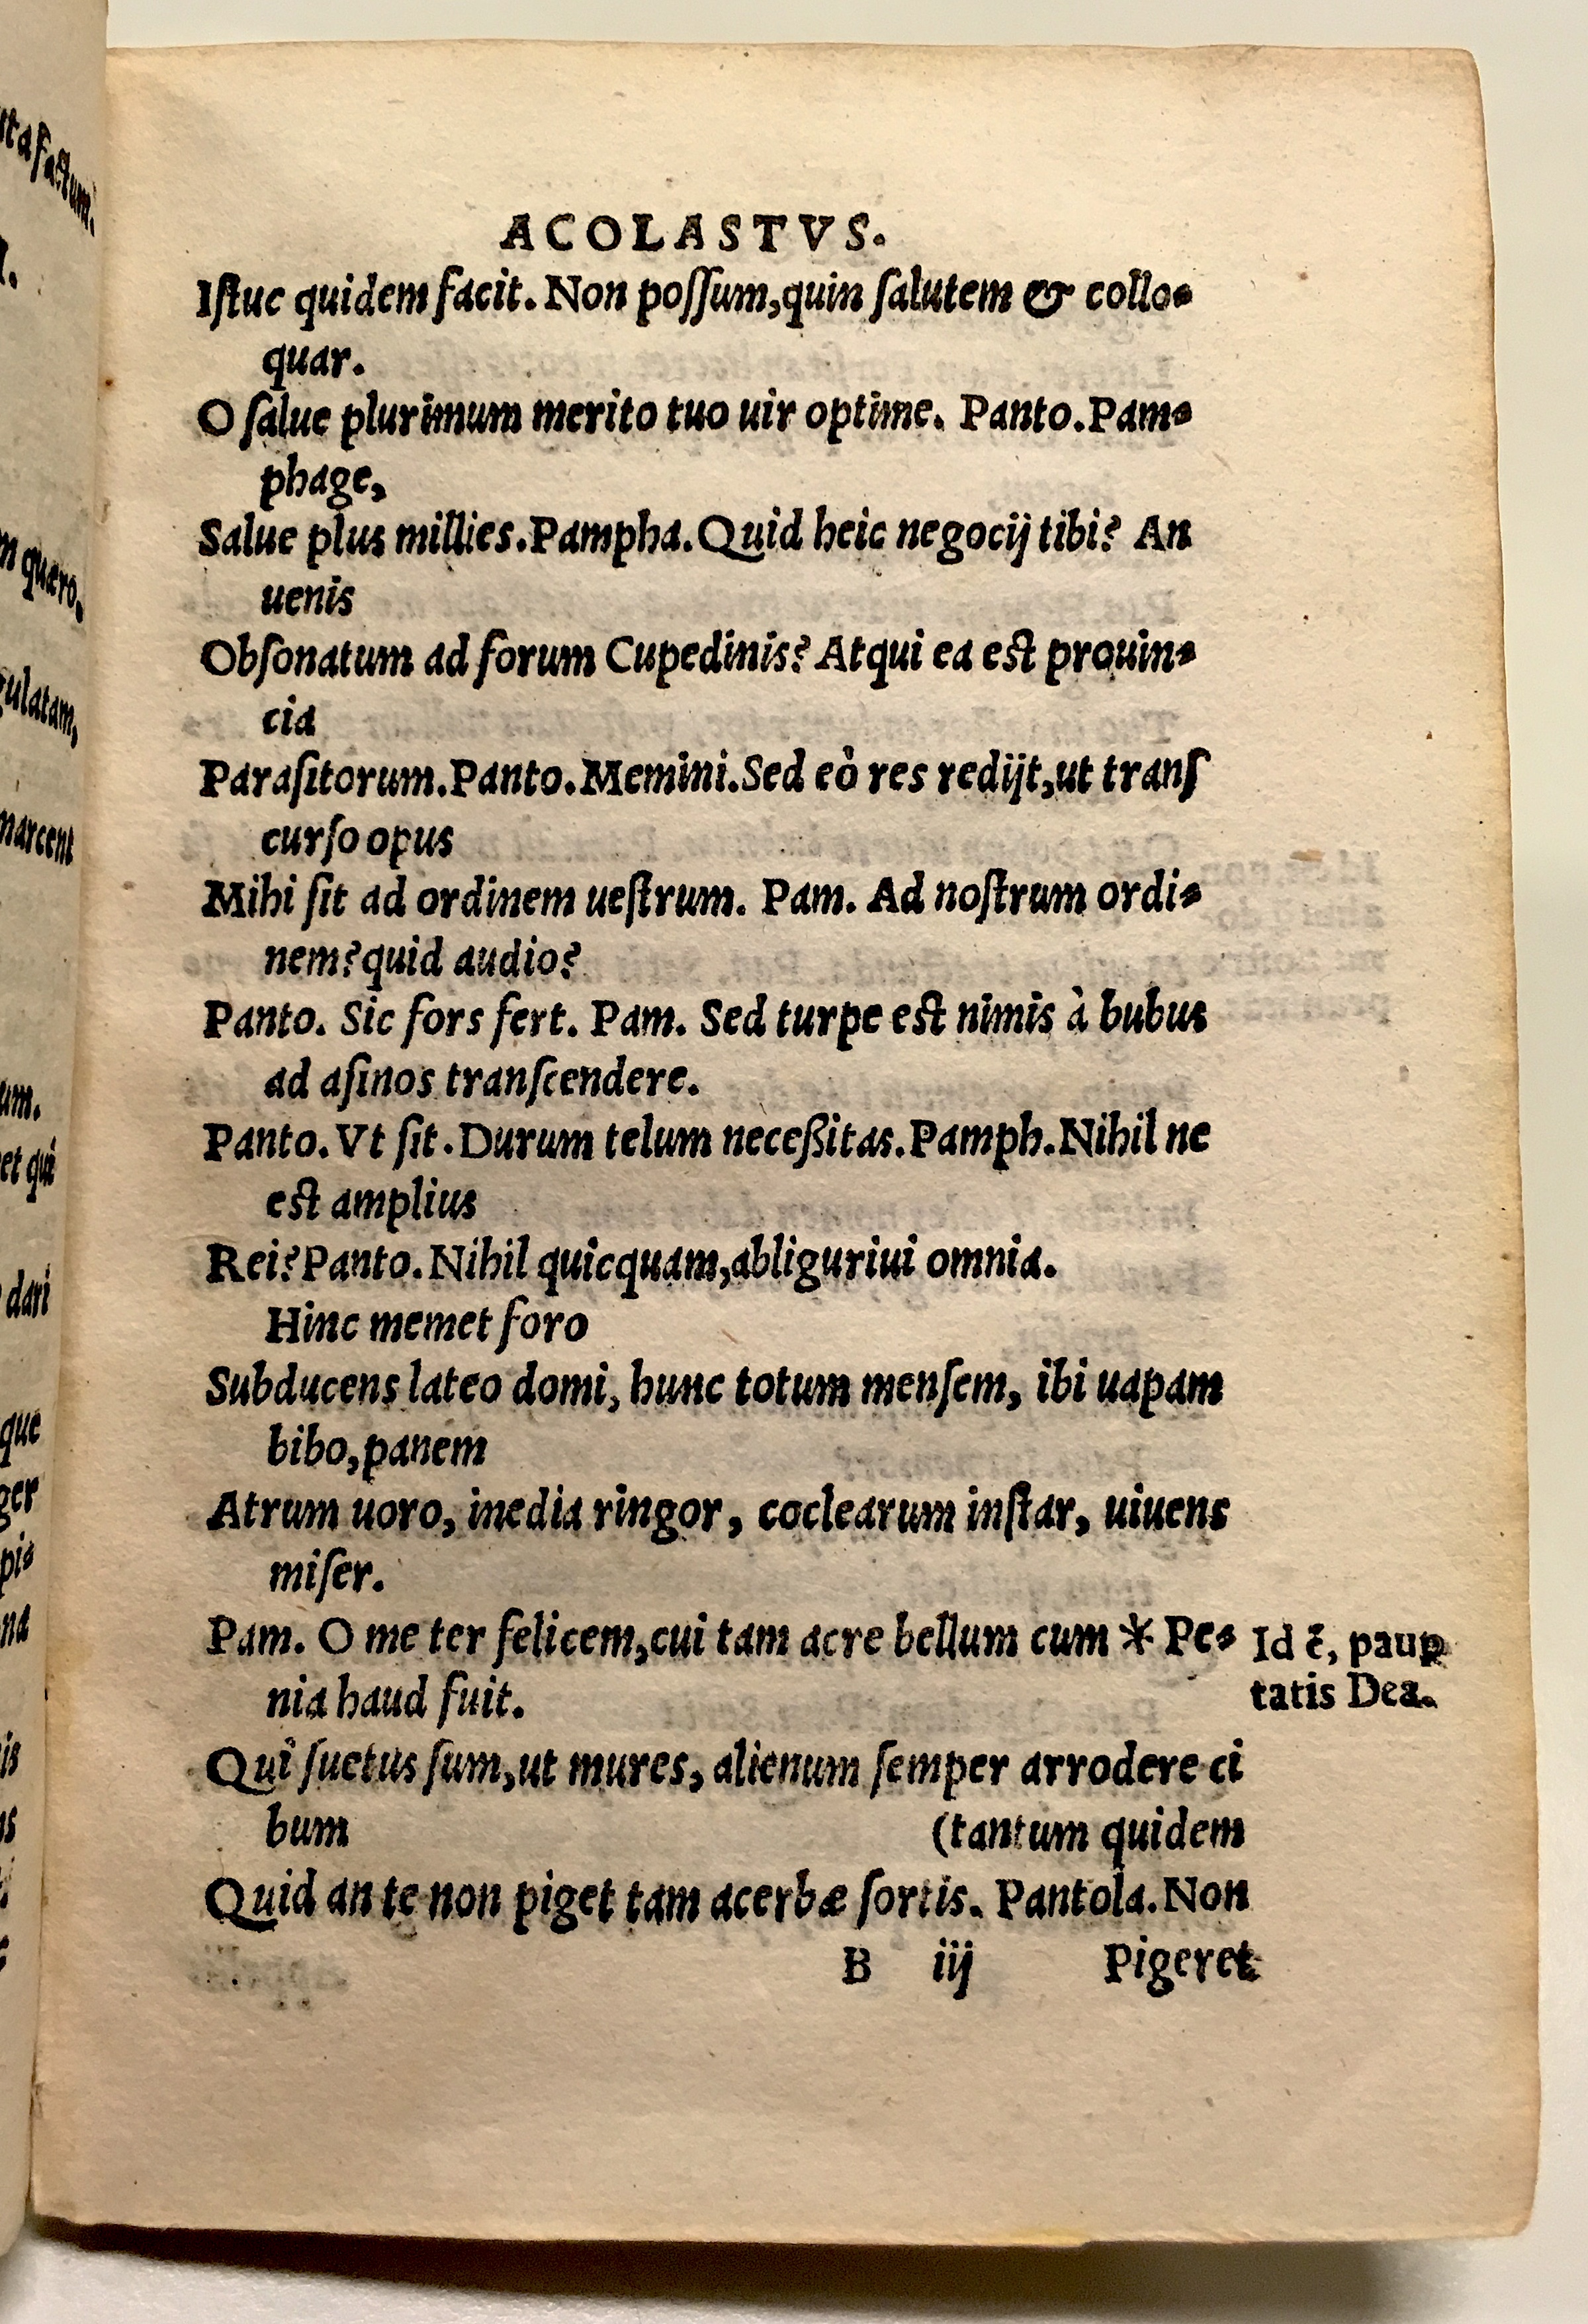 ACOLASTVS.
Iſtuc quidem facit. Non poſſum,quin ſalutem & collo-
quar.
O ſalue plurimum merito tuo uir optime. Panto.Pam-
phage,
Salue plus millies.Pampha.Quid heic negocij tibi? An
uenis
Obſonatum ad forum Cupedinis? Atqui ea eſt prouin-
cia
Paraſitorum.Panto.Memini.Sed eò res redijt,ut tranſ
curſo opus
Mihi ſit ad ordinem ueſtrum. Pam. Ad noſtrum ordi-
nem?quid audio?
Panto. Sic fors fert. Pam. Sed turpe eſt nimis à bubus
ad aſinos tranſcendere.
Panto.Vt ſit.Durum telum neceßitas.Pamph.Nihil ne
eſt amplius
Rei?Panto.Nihil quicquam,abliguriui omnia.
Hinc memet foro
Subducens lateo domi, hunc totum menſem, ibi uapam
bibo,panem
Atrum uoro, inedia ringor, coclearum inſtar, uiuens
miſer.
Pam. O me ter felicem,cui tam acre bellum cum * Pe-
nia haud fuit.
Id ẽ, pauꝑ
tatis Dea.
Quî ſuetus ſum,ut mures, alienum ſemper arrodere ci
bum (tantum quidem
Quid an te non piget tam acerbæ ſortis. Pantola.Non
B iij Pigeret